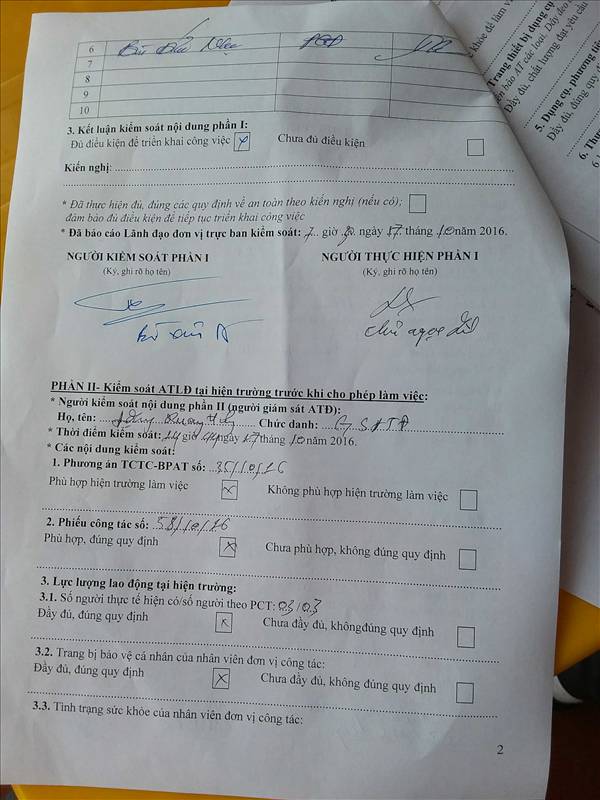 6
7
8
9
10
3. Kết luận kiểm soát nội dung phần I:
Đủ điều kiện để triển khai công việc Chưa đủ điều kiện
Kiến nghị:
* Đã thực hiện đủ, đúng các quy định về an toàn theo kiến nghị (nếu có);
đảm bảo đủ điều kiện để tiếp tục triển khai công việc
* Đã báo cáo Lãnh đạo đơn vị trực ban kiểm soát: 7 giờ ngày 17 tháng 10 năm 2016.
NGƯỜI KIỂM SOÁT PHẦN I NGƯỜI THỰC HIỆN PHẦN I
(Ký, ghi rõ họ tên) (Ký, ghi rõ họ tên)
PHẦN II- Kiểm soát ATLĐ tại hiện trường trước khi cho phép làm việc:
* Người kiểm soát nội dung phần II (người giám sát ATĐ):
Họ, tên: Chức danh: GSATĐ
* Thời điểm kiểm soát: giờ ngày 17 tháng 10 năm 2016.
* Các nội dung kiểm soát:
1. Phương án TCTC-BPAT số: 35/10/16
Phù hợp hiện trường làm việc Không phù hợp hiện trường làm việc
2. Phiếu công tác số: 58/10/16
Phù hợp, đúng quy định Chưa phù hợp, không đúng quy định
3. Lực lượng lao động tại hiện trường:
3.1. Số người thực tế hiện có/số người theo PCT: 03/03
Đầy đủ, đúng quy định Chưa đầy đủ, khôngđúng quy định
3.2. Trang bị bảo vệ cá nhân của nhân viên đơn vị công tác:
Đầy đủ, đúng quy định Chưa đầy đủ, không đúng quy định
3.3. Tình trạng sức khỏe của nhân viên đơn vị công tác:
2
Trang thiết bị dụng cụ
Đầy đủ, chất lượng đạt yêu cầu
5. Dụng cụ, phương tiện
Đầy đủ, đúng quy